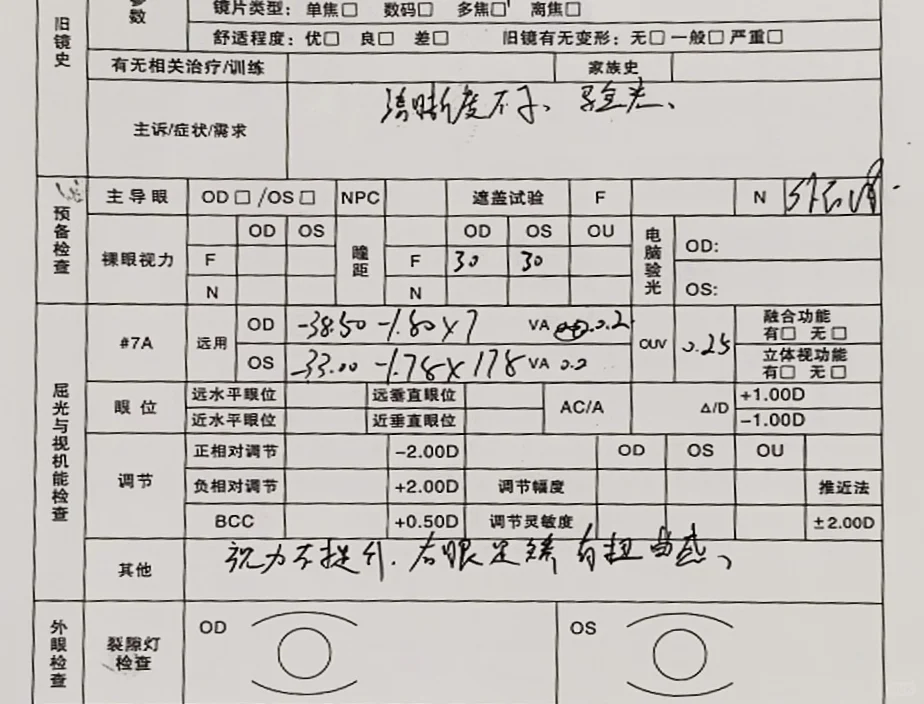 旧镜史
参数
镜片类型：单焦□ 数码□ 多焦□ 离焦□
舒适程度：优□ 良□ 差□ 旧镜有无变形：无□一般□严重□
有无相关治疗/训练 家族史
主诉/症状/需求 清晰度不
预备检查
主导眼 OD□/OS□ NPC 遮盖试验 F N
裸眼视力 OD OS 瞳距 OD OS OU 电脑验光 OD:
F F 30 30
N N OS:
屈光与视机能检查
#7A 远用 OD -38.50 -1.80×7 VA 0.2 OUV 0.25 融合功能 有□ 无□
OS -33.00 -1.75×178 VA 0.2 立体视功能 有□ 无□
眼位 远水平眼位 远垂直眼位 AC/A Δ/D +1.00D
近水平眼位 近垂直眼位 -1.00D
调节 正相对调节 -2.00D OD OS OU
负相对调节 +2.00D 调节幅度 推近法
BCC +0.50D 调节灵敏度 ±2.00D
其他 视力不提升.右眼足矫有扭曲感、
外眼检查
裂隙灯检查 OD OS